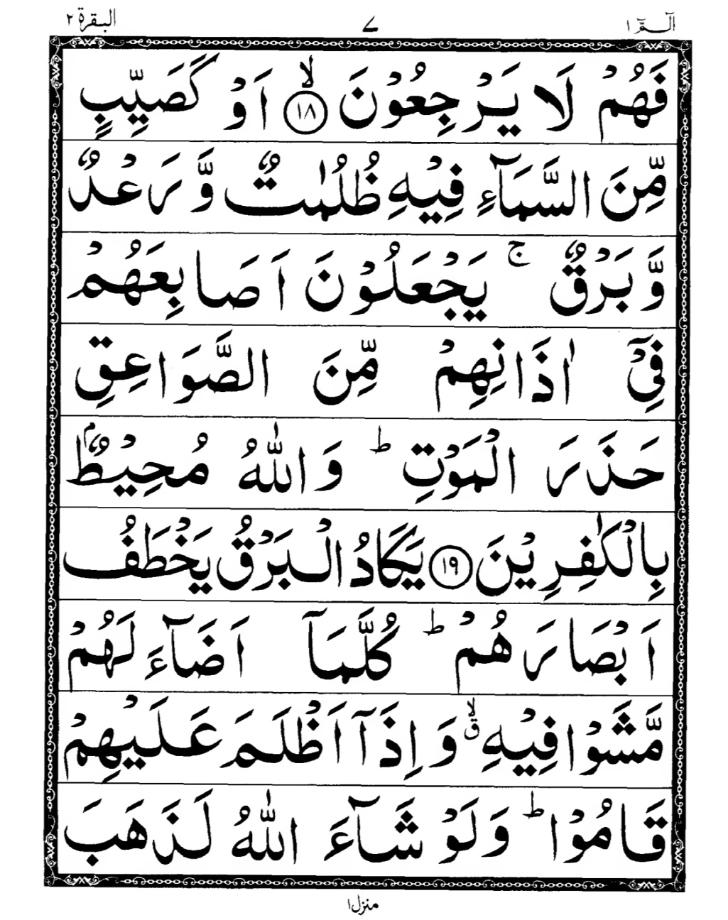 الٓمّٓ ۱
۷
البقرة ۲
فَهُمْ لَا يَرْجِعُوْنَ ۙ‏﴿۱۸﴾ اَوْ كَصَيِّبٍ
مِّنَ السَّمَآءِ فِيْهِ ظُلُمٰتٌ وَّرَعْدٌ
وَّبَرْقٌ ۚ يَجْعَلُوْنَ اَصَابِعَهُمْ
فِيْۤ اٰذَانِهِمْ مِّنَ الصَّوَاعِقِ
حَذَرَ الْمَوْتِ ؕ وَاللّٰهُ مُحِيْطٌۢ
بِالْكٰفِرِيْنَ ﴿۱۹﴾ يَكَادُ الْبَرْقُ يَخْطَفُ
اَبْصَارَهُمْ ؕ كُلَّمَاۤ اَضَآءَ لَهُمْ
مَّشَوْا فِيْهِ ۙۗ وَاِذَاۤ اَظْلَمَ عَلَيْهِمْ
قَامُوْا ؕ وَلَوْ شَآءَ اللّٰهُ لَذَهَبَ
منزل۱